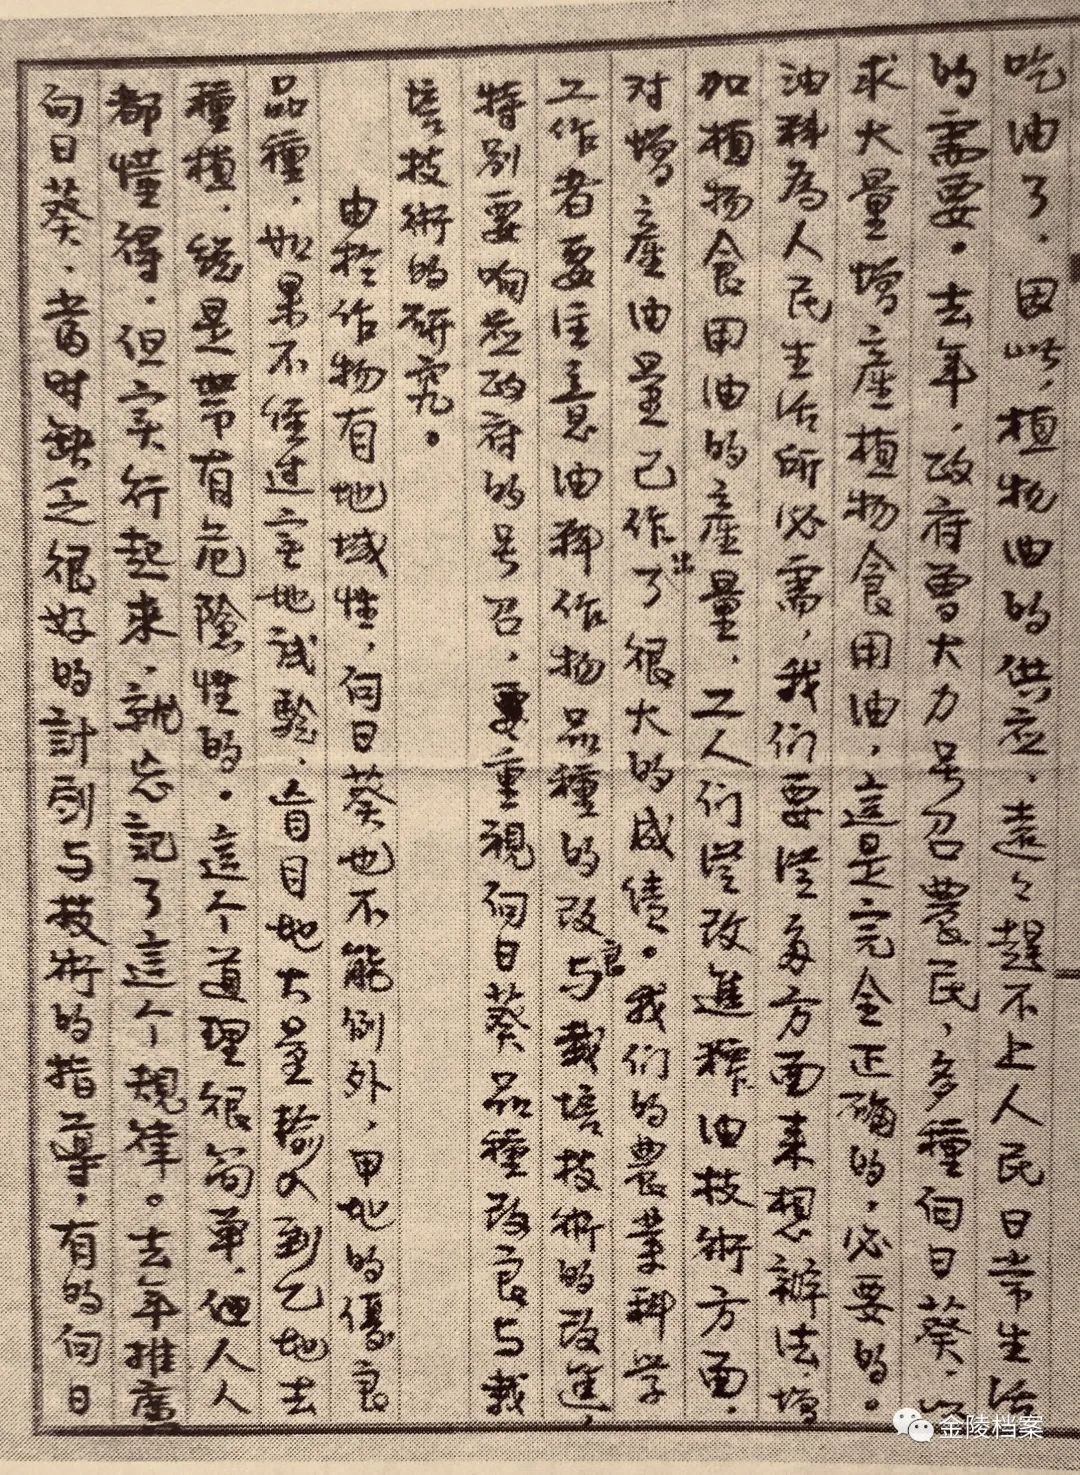 吃油了．因此，植物油的供应，远々趕不上人民日常生活
的需要。去年，政府曾大力号召農民，多種向日葵，以
求大量增產植物食用油，這是完全正确的，必要的。
油料為人民生活所必需，我们要從多方面来想辦法，增
加植物食用油的產量，工人们從改進榨油技術方面，
对增產油量已作出了很大的成績。我们的農業科学
工作者要注意油料作物品種的改良与栽培技術的改進，
特别要响应政府的号召，要重視向日葵品種改良与栽
培技術的研究。
由於作物有地域性，向日葵也不能例外，甲地的優良
品種，如果不經过当地試驗，盲目地大量輸入到乙地去
種植，総是带有危險性的。這个道理很简单，但人人
都懂得，但实行起来，就忘記了這个規律。去年推廣
向日葵，當时缺乏很好的計劃与技術的指導，有的向日
金陵档案